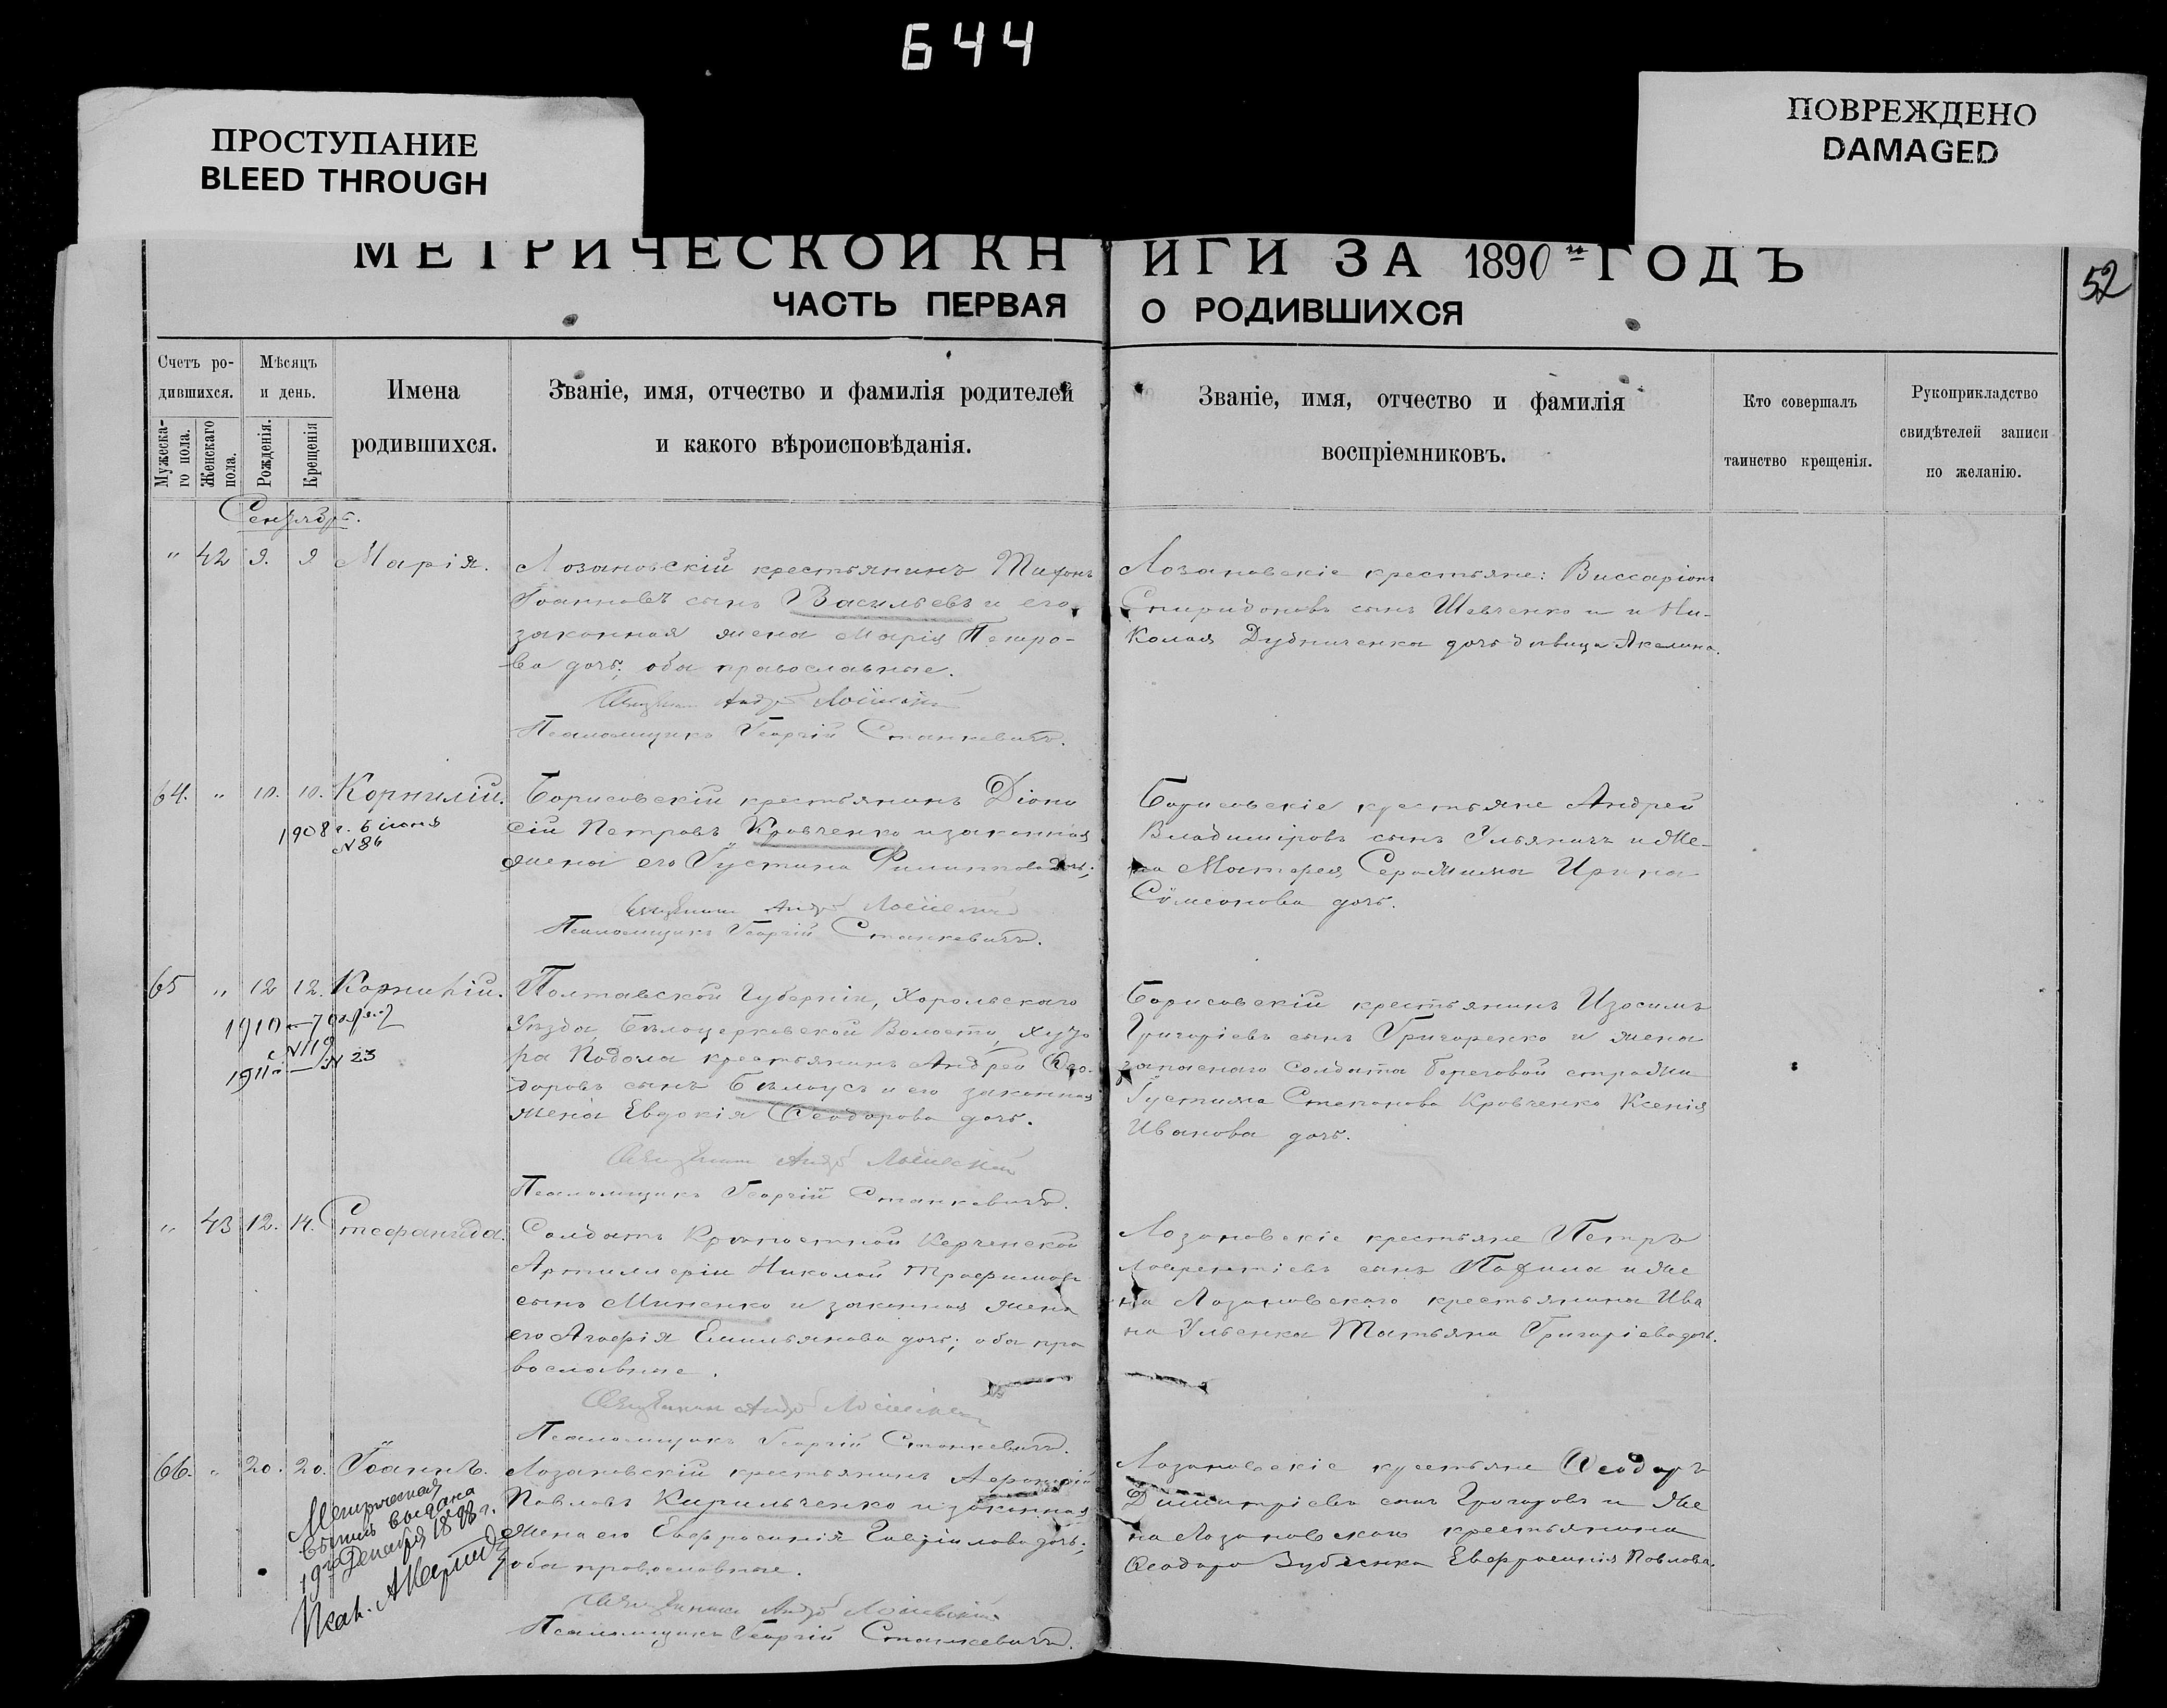 644
ПРОСТУПАНИЕ
BLEED THROUGH
ПОВРЕЖДЕНО
DAMAGED
МЕТРИЧЕСКОЙ КНИГИ ЗА 1890 ГОДЪ
52
ЧАСТЬ ПЕРВАЯ О РОДИВШИХСЯ
Счетъ ро-
дившихся.
Мужеска-
го пола.
Женскаго
пола.
Мѣсяцъ
и день.
Рожденія.
Крещенія
Имена
родившихся.
Званіе, имя, отчество и фамилія родителей
и какого вѣроисповѣданія.
Званіе, имя, отчество и фамилія
воспріемниковъ.
Кто совершалъ
таинство крещенія.
Рукоприкладство
свидѣтелей записи
по желанію.
Сентябрь.
" 42 9. 9 Марія.
Лозановскій крестьянинъ
Іоанновъ сынъ Васильевъ и его
законная жена Марія Петро-
ва дочь; оба православные.
Псаломщикъ Георгій Станкевичъ.
Лозановскіе крестьяне: Виссаріонъ
Спиридоновъ сынъ Шевченко и Ни-
колая Дудниченка дочь дѣвица Акелина.
64. " 10. 10. Корнилій.
1908 г. 6 іюня
№ 86
Борисовскій крестьянинъ Діони
сій Петровъ Кравченко и законная
жена его Густина Филиппова дочь;
Псаломщикъ Георгій Станкевичъ.
Борисовскіе крестьяне Андрей
Владиміровъ сынъ Ульяничъ и же-
на Ирина
Сѵмеонова дочь.
65 " 12 12. Корнилій.
1910
№ 119
1911 № 23
Полтавской Губерніи, Хорольскаго
Уѣзда, Бѣлоцерковской Волости, хуто
ра Подола крестьянинъ Андрей Ѳео-
доровъ сынъ Бѣлоусъ и его законная
жена Евдокія Ѳеодорова дочь.
Псаломщикъ Георгій Станкевичъ.
Борисовскій крестьянинъ Изосимъ
Григоріевъ сынъ Григоренко и жена
запаснаго солдата береговой стражи
Густина Степанова Кравченко Ксенія
Иванова дочь.
" 43 12. 14. Стефанида.
Солдатъ Крѣпостной Керченской
Артиллеріи Николай Трофимовъ
сынъ Миненко и законная жена
его Агафія Емильянова дочь; оба пра
вославные.
Псаломщикъ Георгій Станкевичъ.
Лозановскіе крестьяне Петръ
Лаврентіевъ сынъ и же
на Лозановскаго крестьянина Ива
на Татьяна Григоріева дочь.
66. " 20. 20. Іоаннъ.
Метрическая
выпись выдана
19го Декабря 1898 г.
Псал.
Лозановскій крестьянинъ
Павловъ Кирильченко и законная
жена его Евфросинія Гавріилова дочь;
оба православные.
Псаломщикъ Георгій Станкевичъ.
Лозановскіе крестьяне Ѳеодоръ
Димитріевъ сынъ и же
на Лозановскаго крестьянина
Ѳеодора Зубченка Евфросинія Павлова.